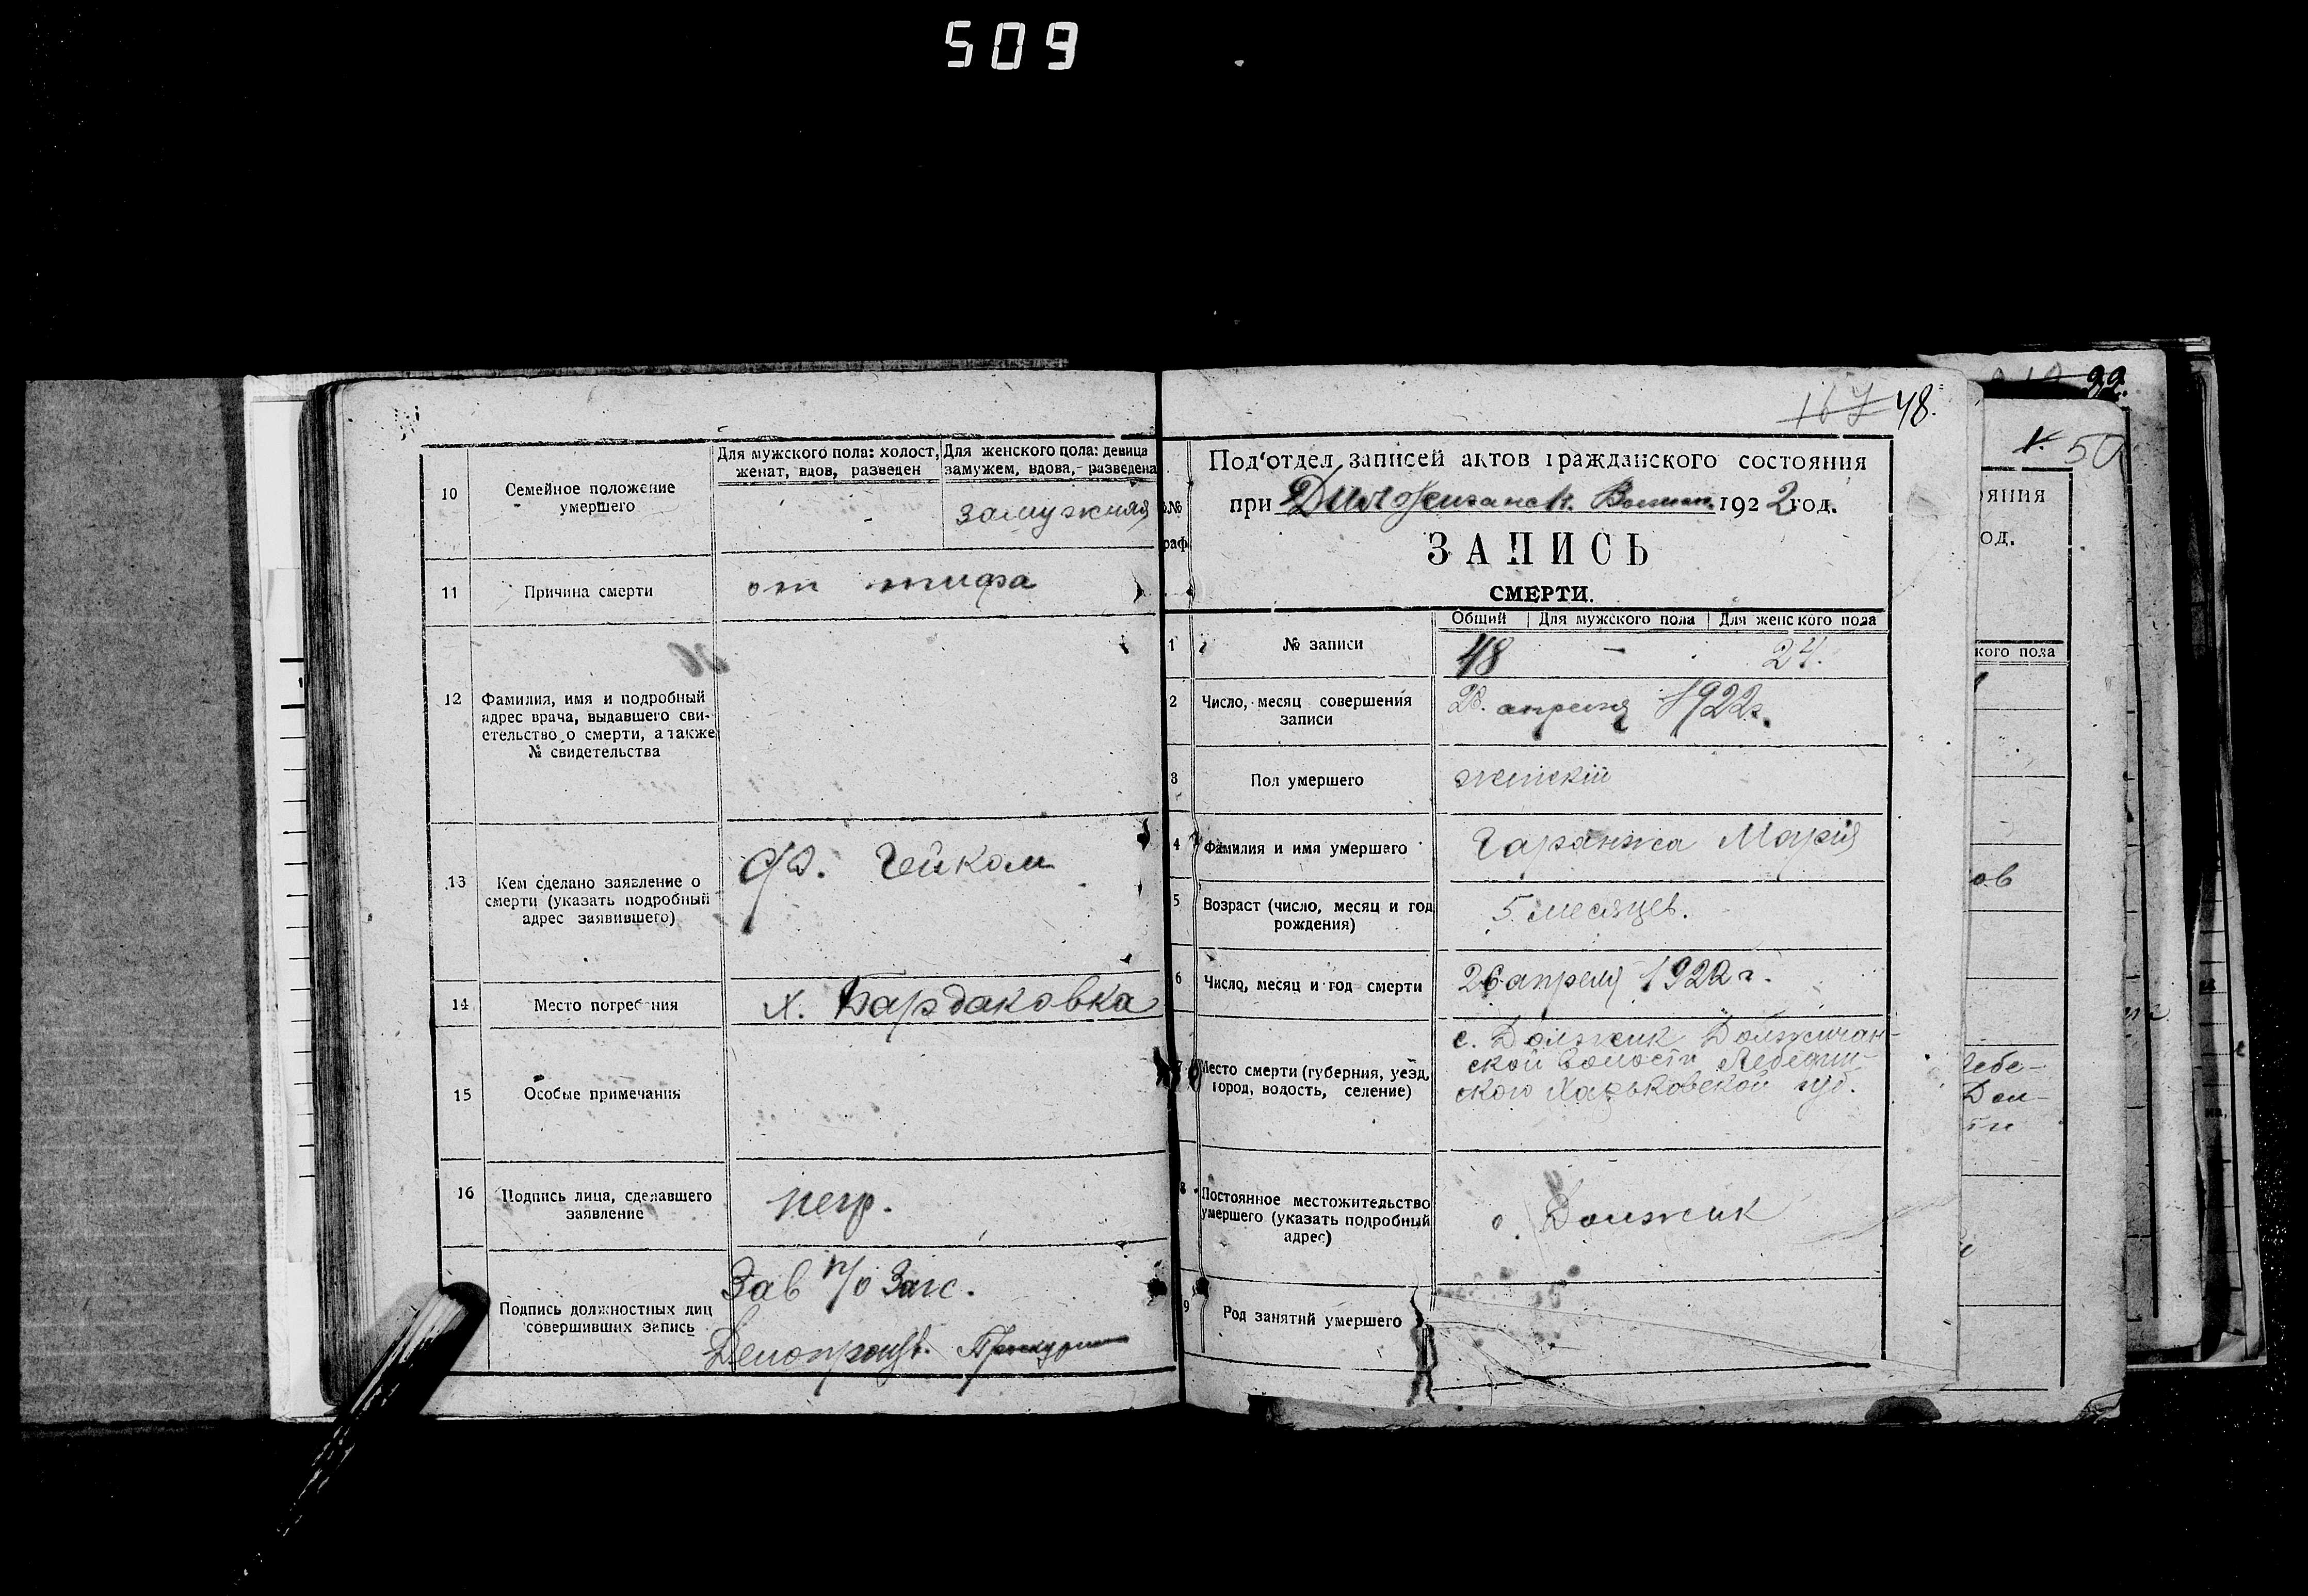 509
10
Семейное положение
умершего
Для мужского пола: холост,
женат, вдов, разведен
Для женского пола: девица
замужем, вдова, разведена
-
замужняя
11
Причина смерти
от тифа
12
Фамилия, имя и подробный
адрес врача, выдавшего сви-
етельство о смерти, а также
№ свидетельства
13
Кем сделано заявление о
смерти (указать подробный
адрес заявившего)
14
Место погребения
х. Бардаковка
15
Особые примечания
16
Подпись лица, сделавшего
заявление
негр.
Подпись должностных лиц
совершивших запись
Зав п/о Загс.
Делопроизв.
167 48.
Под'отдел записей актов гражданского состояния
при 1922 год.
ЗАПИСЬ
СМЕРТИ.
№
раф
Общий
Для мужского пола
Для женского пола
1
№ записи
48
-
24.
2
Число, месяц совершения
записи
28. апреля 1922г.
3
Пол умершего
женский
4
Фамилия и имя умершего
Гаранжа Мария
5
Возраст (число, месяц и год
рождения)
5 месяцев.
6
Число, месяц и год смерти
26 апреля 1922 г.
Место смерти (губерния, уезд,
город, водость, селение)
с. Должик Должичан-
ской волости Лебедин-
ского Харьковской губ.
8
Постоянное местожительство
умершего (указать подробный
адрес)
с. Должик
9
Род занятий умершего
50
ояния
од.
кого пола
ов
Лебе-
Дол-